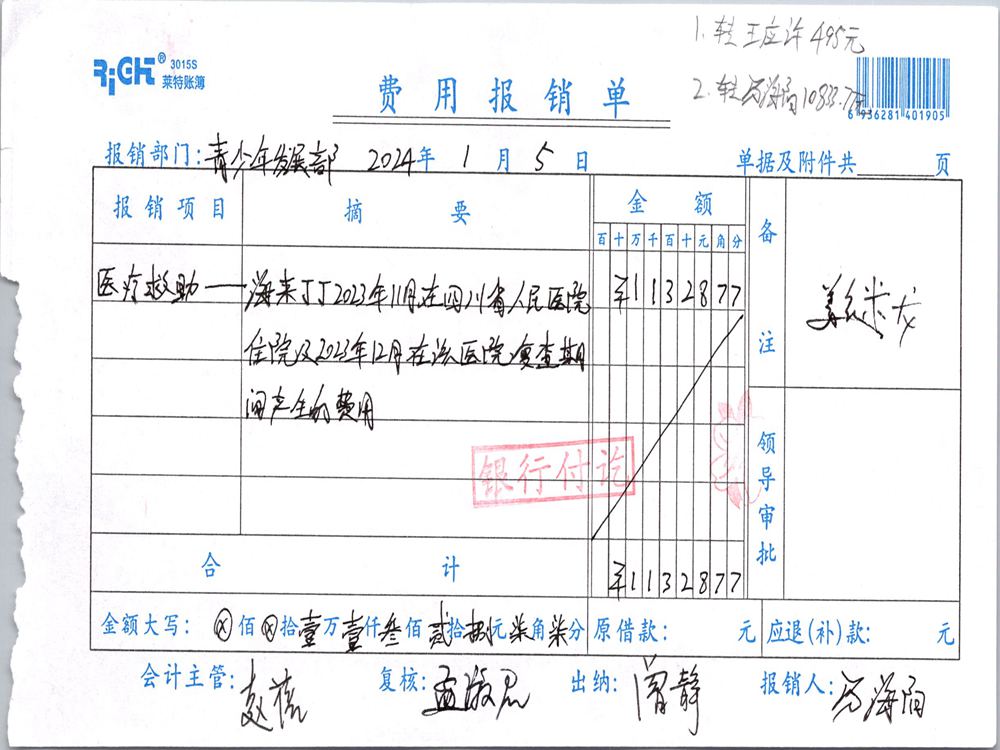 1. 转王应许495元
2. 转马海阳10833.77元
RiGHT® 3015S
莱特账簿
费用报销单
6 936281 401905
报销部门:青少年发展部 2024年 1 月 5 日 单据及附件共 页
报销项目 摘要 金额 备注
百十万千百十元角分
医疗救助—— 海来丁丁2023年11月在四川省人民医院 ¥1132877
住院及2023年12月在该医院复查期
间产生的费用
银行付讫
领导审批
合计 ¥1132877
金额大写: ⊗佰⊗拾壹万壹仟叁佰贰拾捌元柒角柒分 原借款: 元 应退(补)款: 元
会计主管: 复核:孟淑君 出纳:曾静 报销人:马海阳